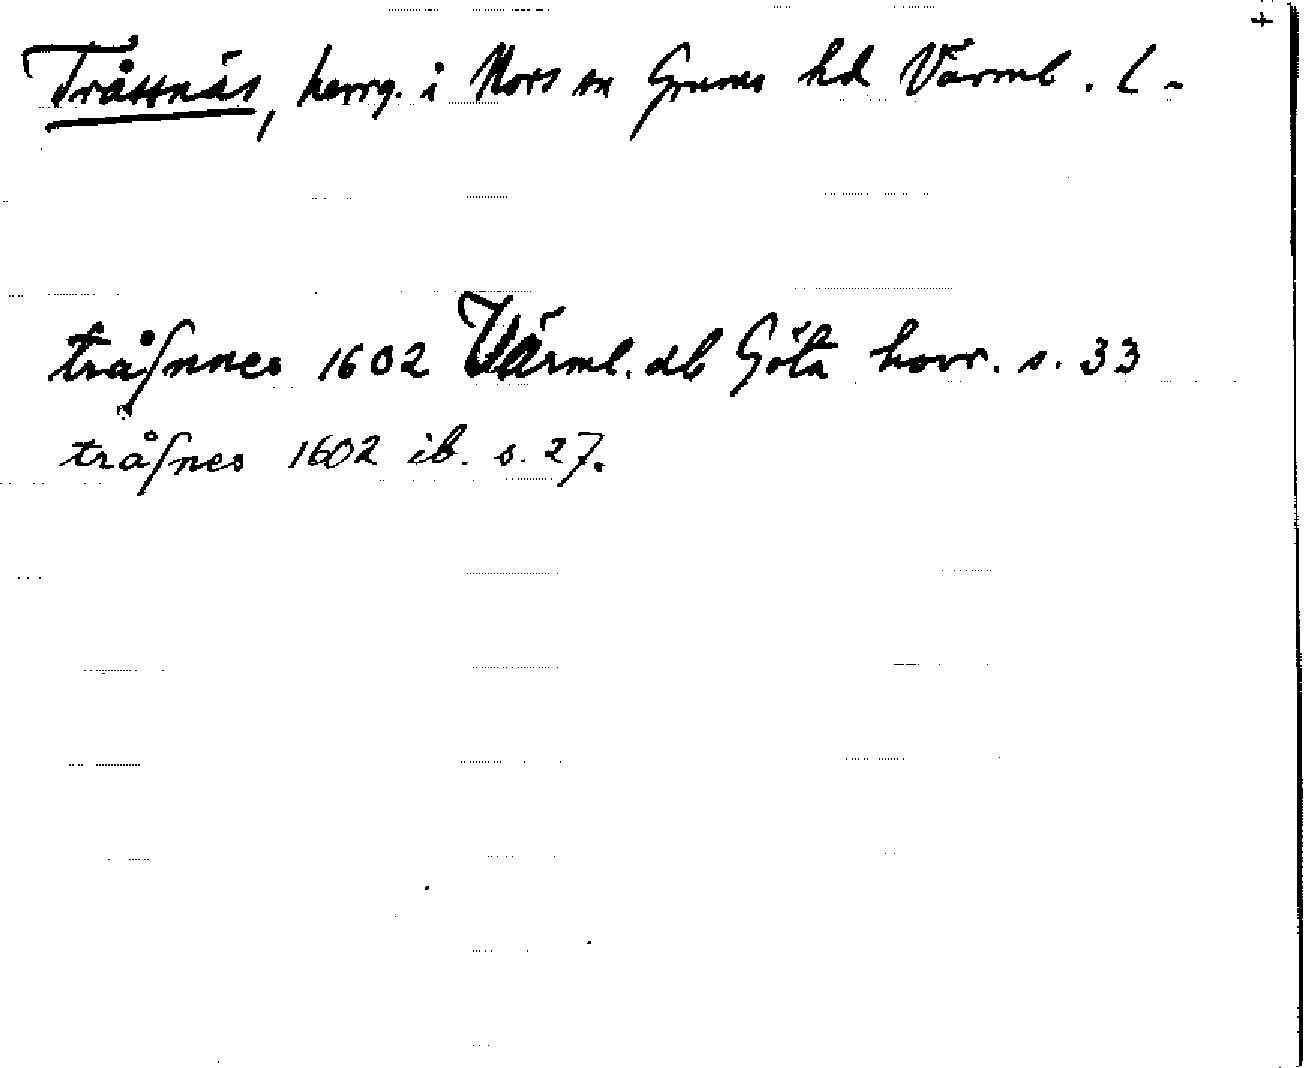 +
Tråttnäs, herrg. i Nors sn Grums hd Värml. l -
tråſnnes 1602 Värml. db Göta hovr. s. 33
tråſnes 1602 ib. s. 27.